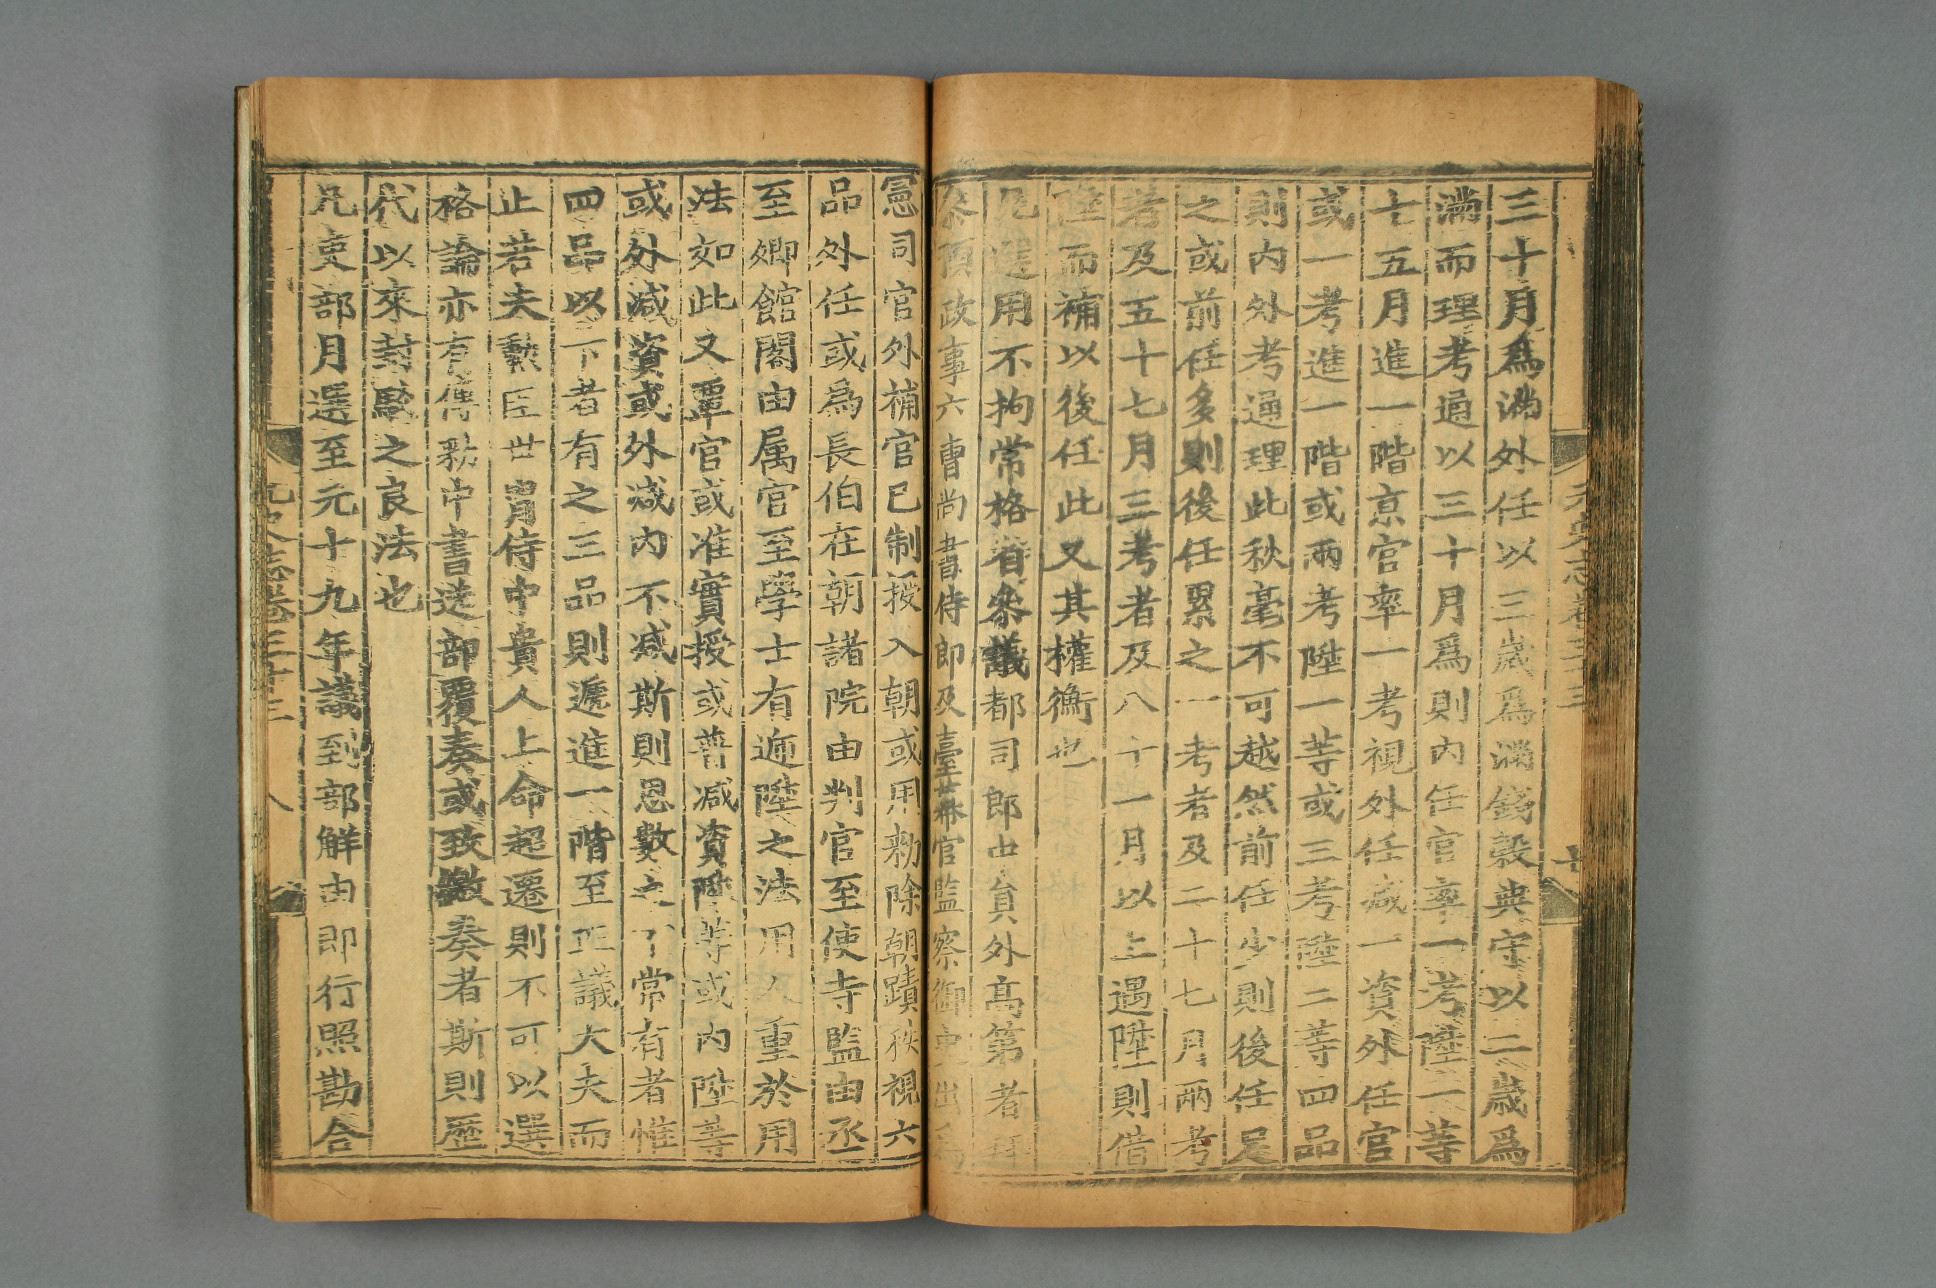 三十月爲滿外任以三歲爲滿錢穀典守以二歲爲
滿而理考通以三十月爲則內任官率一考陞一等
十五月進一階京官率一考視外任減一資外任官
或一考進一階或兩考陞一等或三考陞二等四品
則內外考通理此秋毫不可越然前任少則後任足
之或前任多則後任累之一考者及二十七月兩考
者及五十七月三考者及八十一月以上遇陞則借
陞而補以後任此又其權衡也
凡選用不拘常格省參議都司郎中員外高第者拜
參預政事六曹尚書侍郎及臺幕官監察御史出爲
憲司官外補官已制授入朝或用勑除朝蹟秩視六
品外任或爲長伯在朝諸院由判官至使寺監由丞
至卿館閣由属官至學士有遞陞之法用人重於用
法如此又覃官或准實授或普減資陞等或內陞等
或外減資或外減內不減斯則恩數之不常有者惟
四品以下者有之三品則遞進一階至正議大夫而
止若夫勳臣世胄侍中貴人上命超遷則不可以選
格論亦有傳勑中書送部覆奏或致繳奏者斯則歷
代以來封駁之良法也
凡吏部月選至元十九年議到部解由即行照勘合
元史志卷三十三
七
元史志卷三十三
八